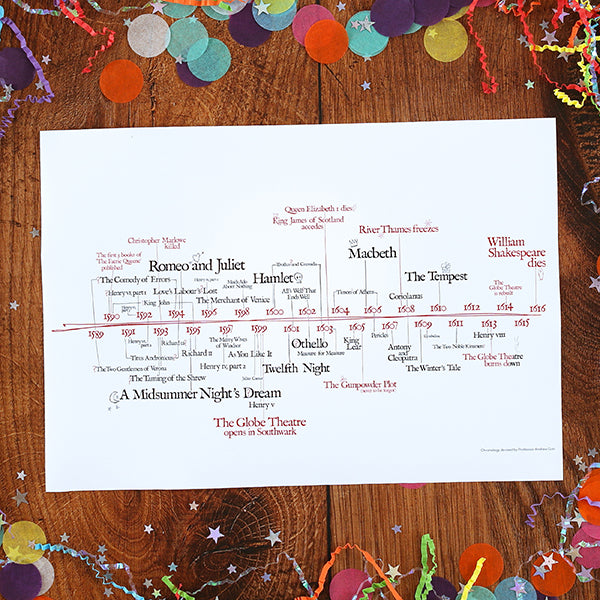 Queen Elizabeth I dies
King James of Scotland
accedes
River Thames freezes
Christopher Marlowe
killed
William
Shakespeare
dies
The first 3 books of
The Faerie Queene
published
Romeo and Juliet
Macbeth
Hamlet
Troilus and Cressida
The Tempest
The Comedy of Errors
Much Ado
About Nothing
The Globe
Theatre
is rebuilt
Henry vi, part 1
Love's Labour's Lost
All's Well That
Ends Well
Timon of Athens
Coriolanus
King John
The Merchant of Venice
1590
1592
1594
1596
1598
1600
1602
1604
1606
1608
1610
1612
1614
1616
1589
1591
1593
1595
1597
1599
1601
1603
1605
1607
1609
1611
1613
1615
The Merry Wives
of Windsor
Othello
Measure for Measure
King
Lear
Pericles
Antony
and
Cleopatra
Henry viii
The Two Noble Kinsmen
Richard ii
As You Like It
Titus Andronicus
The Two Gentlemen of Verona
Henry iv, part 2
Twelfth Night
The Winter's Tale
The Globe Theatre
burns down
The Taming of the Shrew
The Gunpowder Plot
A Midsummer Night's Dream
Henry v
The Globe Theatre
opens in Southwark